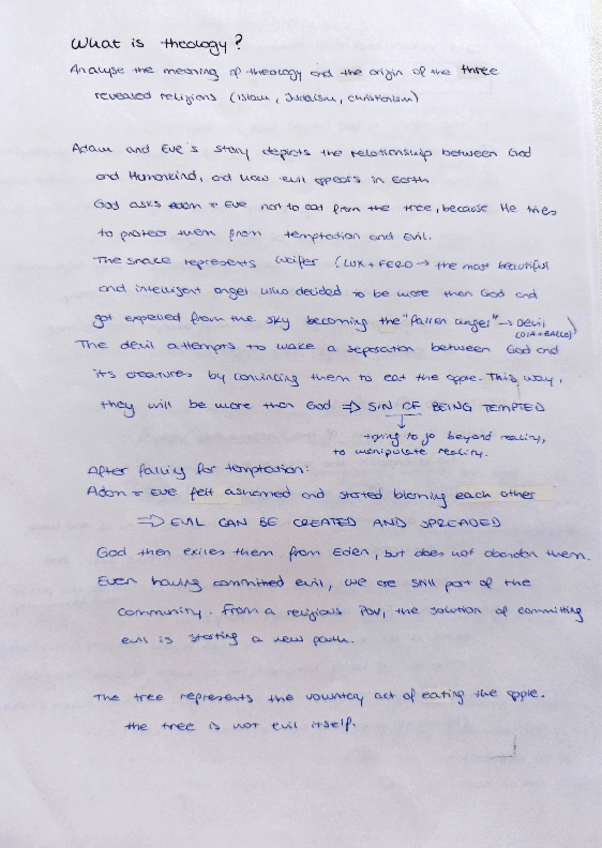 What is theology?
Analyse the meaning of theology and the origin of the three
revealed religions (Islam, Judaism, christianism)
Adam and Eve's story depicts the relationship between God
and Humankind, and how evil appears in Earth
God asks Adam + Eve not to eat from the tree, because He tries
to protect them from temptation and Evil.
The snake represents Lucifer (LUX + FERO → the most beautiful
and intelligent angel who decided to be more than God and
got expelled from the sky becoming the "fallen angel" → Devil)
(DIA + BALLO)
The devil attempts to make a separation between God and
its creatures by convincing them to eat the apple. This way,
they will be more than God ⇒ SIN OF BEING TEMPTED
trying to go beyond reality,
to manipulate reality.
After falling for temptation:
Adam + Eve felt ashamed and started blaming each other
⇒ EVIL CAN BE CREATED AND SPREADED
God then exiles them from Eden, but does not abandon them.
Even having committed evil, we are still part of the
community. From a religious POV, the solution of committing
evil is starting a new path.
The tree represents the voluntary act of eating the apple.
the tree is not evil itself.